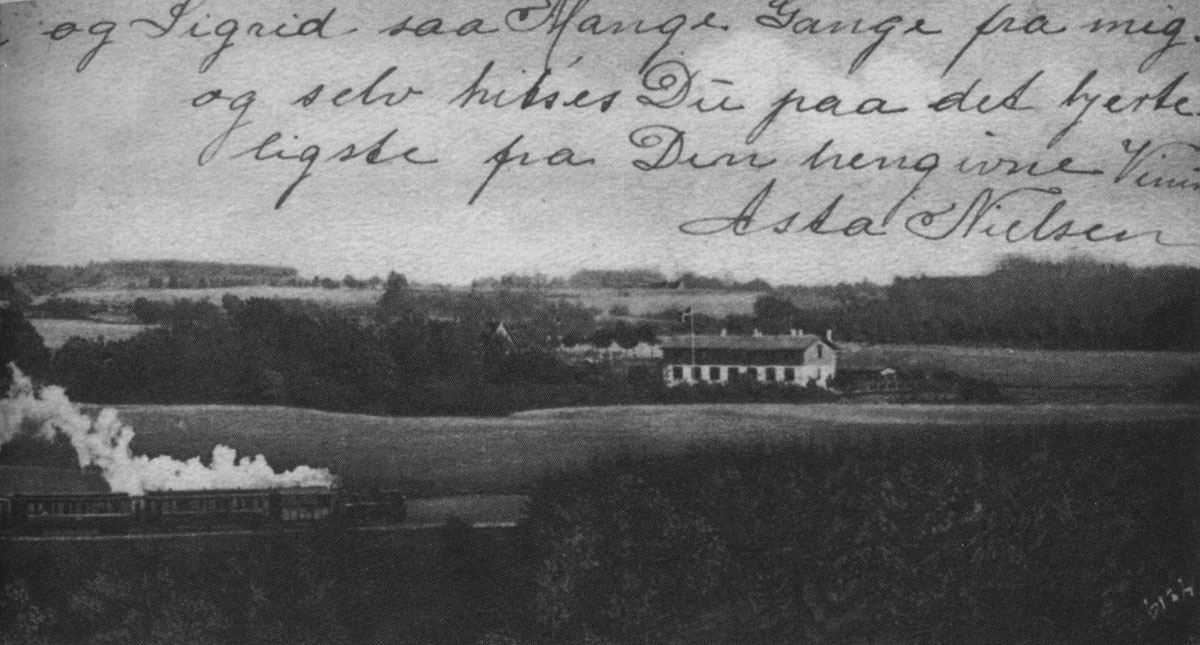 og Sigrid saa Mange Gange fra mig.
og selv hilses Du paa det hjerte
ligste fra Den hengivne
Asta Nielsen